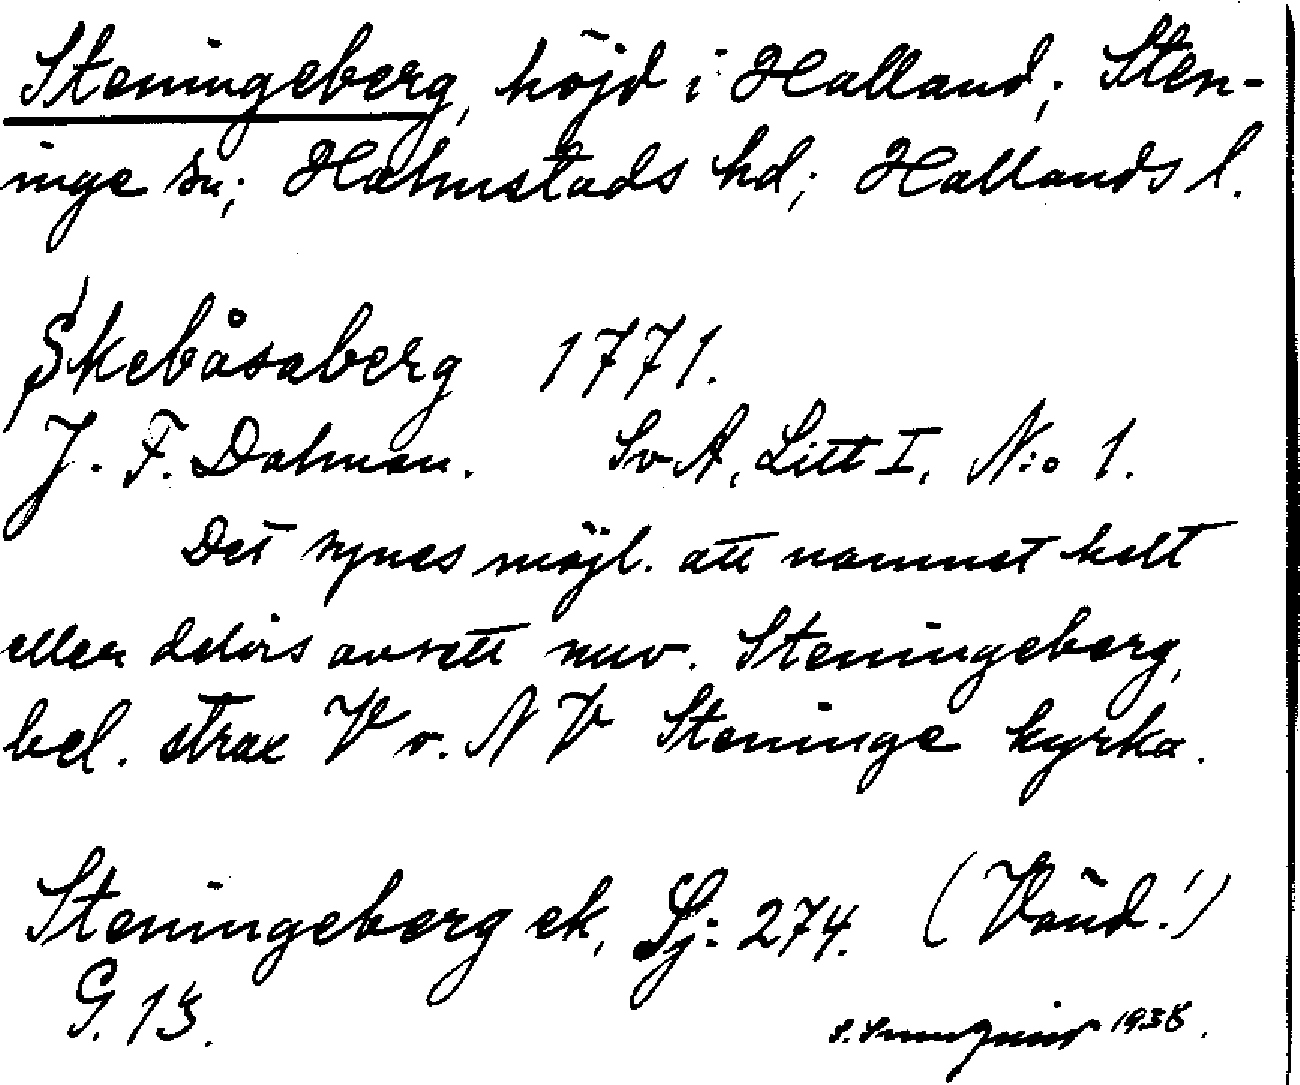 Steningeberg, höjd i Halland; Sten-
inge sn; Halmstads hd; Hallands l.
Skebåsaberg 1771.
J. F. Dalman. SvA, Litt I, N:o 1.
Det synes möjl. att namnet helt
eller delvis avsett nuv. Steningeberg,
bel. strax V o. NV Steninge kyrka.
Steningeberg ek, Sj: 274. (Vänd!)
G. 13.
1938.